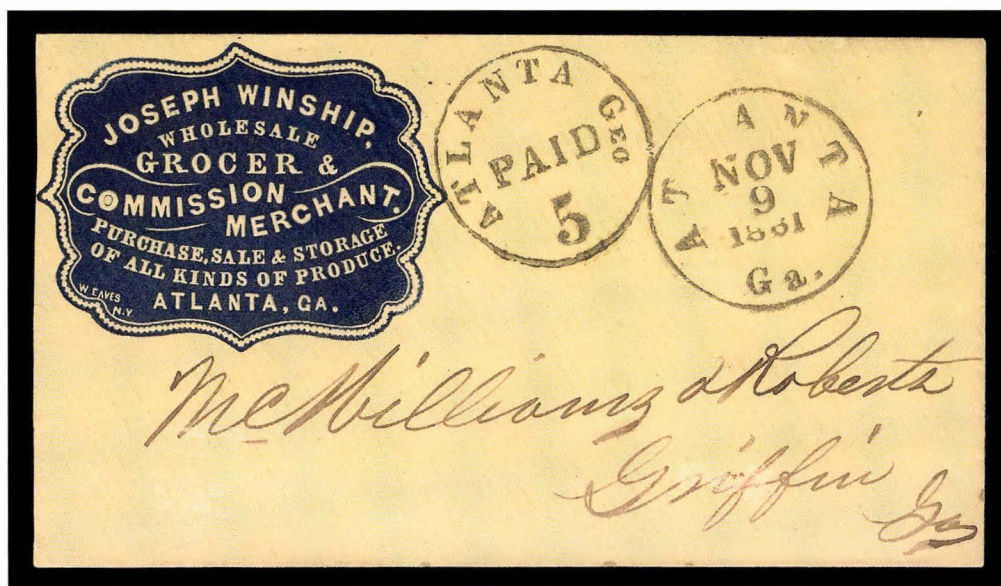 JOSEPH WINSHIP,
WHOLESALE
GROCER &
COMMISSION
MERCHANT.
PURCHASE, SALE & STORAGE
OF ALL KINDS OF PRODUCE.
ATLANTA, GA.
WEAVES
N.Y.
ATLANTA GEO
PAID
5
AT ANTA
NOV
9
1861
Ga.
McWilliams & Roberts
Griffin
Ga